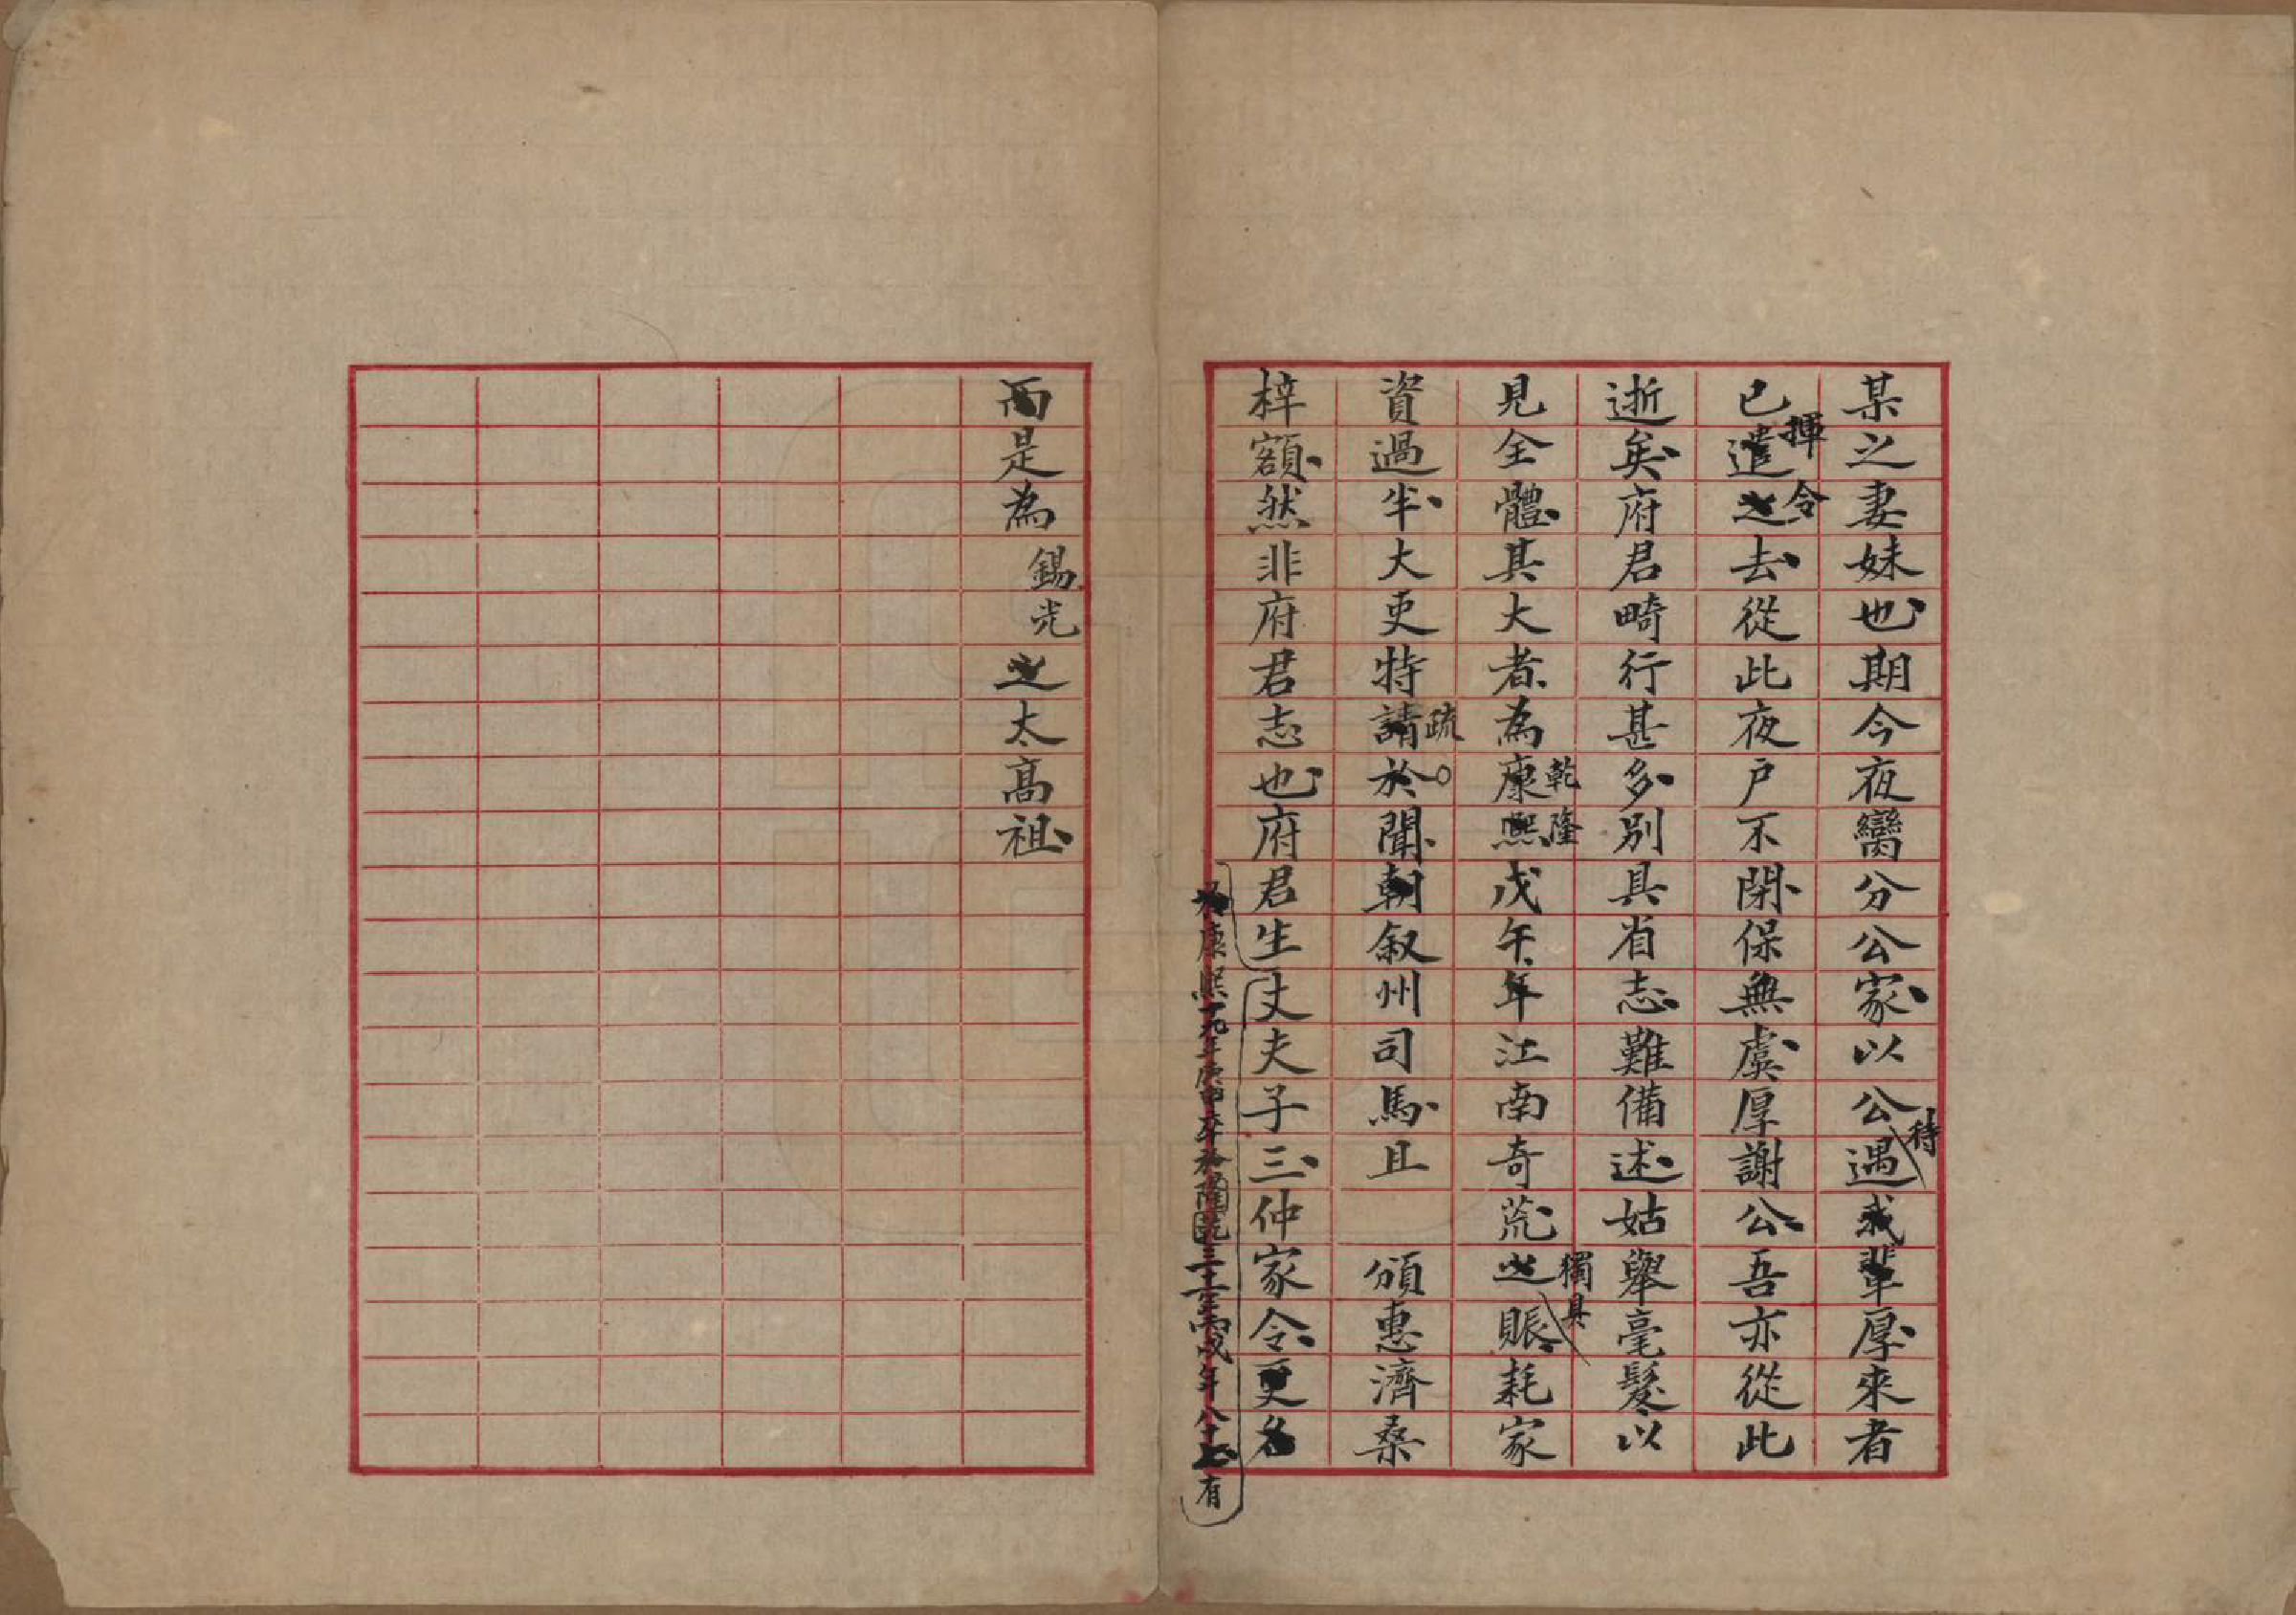 某之妻妹也期今夜臠分公家以公遇我輩厚來者
待
已遣之去從此夜戶不閉保無虞厚謝公吾亦從此
揮令
逝矣府君畸行甚多別具省志難備述姑舉毫髮以
見全體其大者為康熙戊午年江南奇荒之賑耗家
乾隆
獨具
資過半大吏特請於聞朝敘州司馬且 頒惠濟桑
疏
梓額然非府君志也府君生丈夫子三仲家令更名
康熙十九年庚申卒於隆乾三十一丙戌年八十七有
而是為錫光之太高祖